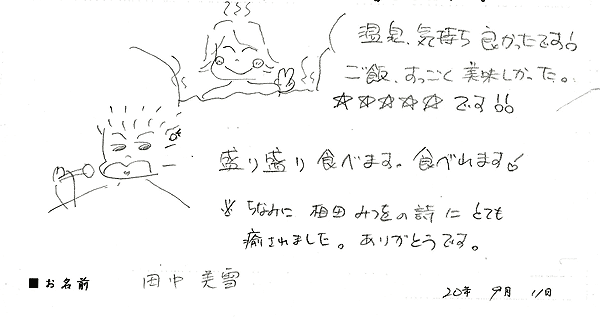 温泉、気持ち良かったです!!
ご飯、すっごく美味しかった。
☆☆☆☆☆です!!
盛り盛り食べます。食べれます!
※ちなみに相田みつをの詩にとても
癒されました。ありがとうです。
■お名前 田中美雪
20年9月11日